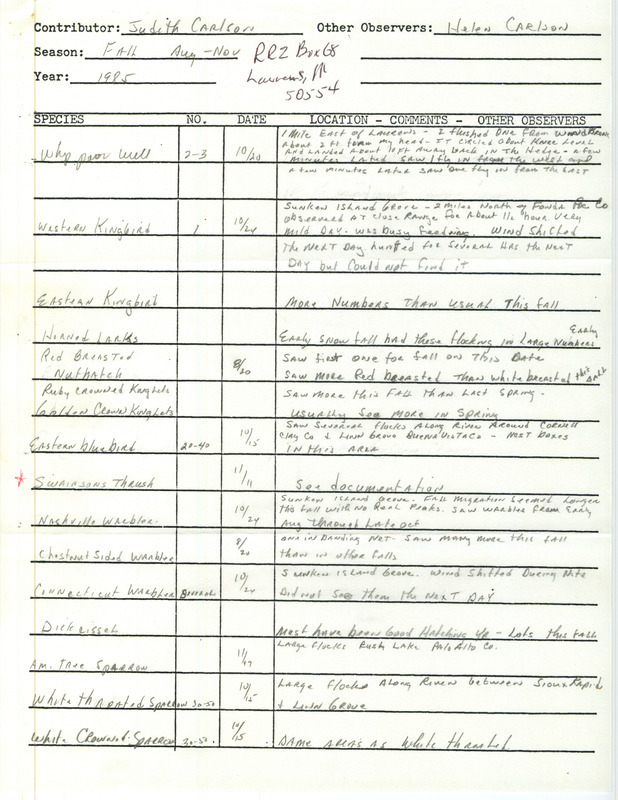 Contributor: Judith Carlson Other Observers: Helen Carlson
Season: Fall Aug-Nov RR2 Box 68
Year: 1985 Laurens, IA
50554
SPECIES NO. DATE LOCATION - COMMENTS - OTHER OBSERVERS
1 Mile East of Laurens - I flushed one from
about 2 ft from my head - IT circled about knee level
and landed about 10ft away back in the Hedge - a few
Whip poor will 2-3 10/20 minutes later saw 1 fly in from the west and
a few minutes later saw one fly in from the East
Sunken Island Grove - 2 miles North of Fonda Co
observed at close range for about 1½ hour. Very
Western Kingbird 1 10/24 mild Day. was busy feeding. Wind Shifted
The next Day, hunted for several hrs the next
DAY but could not find it
Eastern Kingbird More Numbers Than usual This fall
Horned Larks Early snow fall had these flocking in Large Numbers Early
Red Breasted 8/20 Saw first one for fall on This Date
Nuthatch Saw more Red breasted Than white breasted this fall
Ruby crowned Kinglets Saw more this Fall than Last Spring.
Golden Crown Kinglets usually see more in Spring
Saw several flocks Along River Around Cornell
Eastern bluebird 20-40 10/15 Clay Co & Linn Grove Buena Vista Co - Nest boxes
in this area
Swainsons Thrush 11/11 See documentation
Sunken Island Grove. Fall Migration seemed Longer
this fall with no Real Peaks. Saw warbler from Early
Nashville Warbler. 10/24 Aug Through Late oct
Chestnut Sided Warbler 8/20 one in Banding Net - Saw many more this fall
than in other falls
Connecticut Warbler Several 10/24 Sunken Island Grove. Wind Shifted During Nite
Did not see them the next DAY
Dickcissel Must have been Good Hatching yr - Lots this Fall
Am. Tree Sparrow 11/ Large flocks Rush Lake Palo Alto Co.
White throated Sparrow 30-50 10/15 Large flocks Along River between Sioux Rapids
& Linn Grove
White Crowned Sparrow 30-50. 10/15 Same area's as White throated